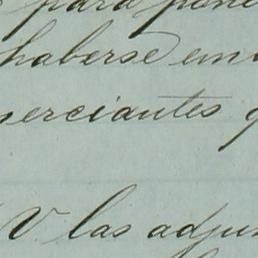 para pone
haberse em
erciantes q
V las adju